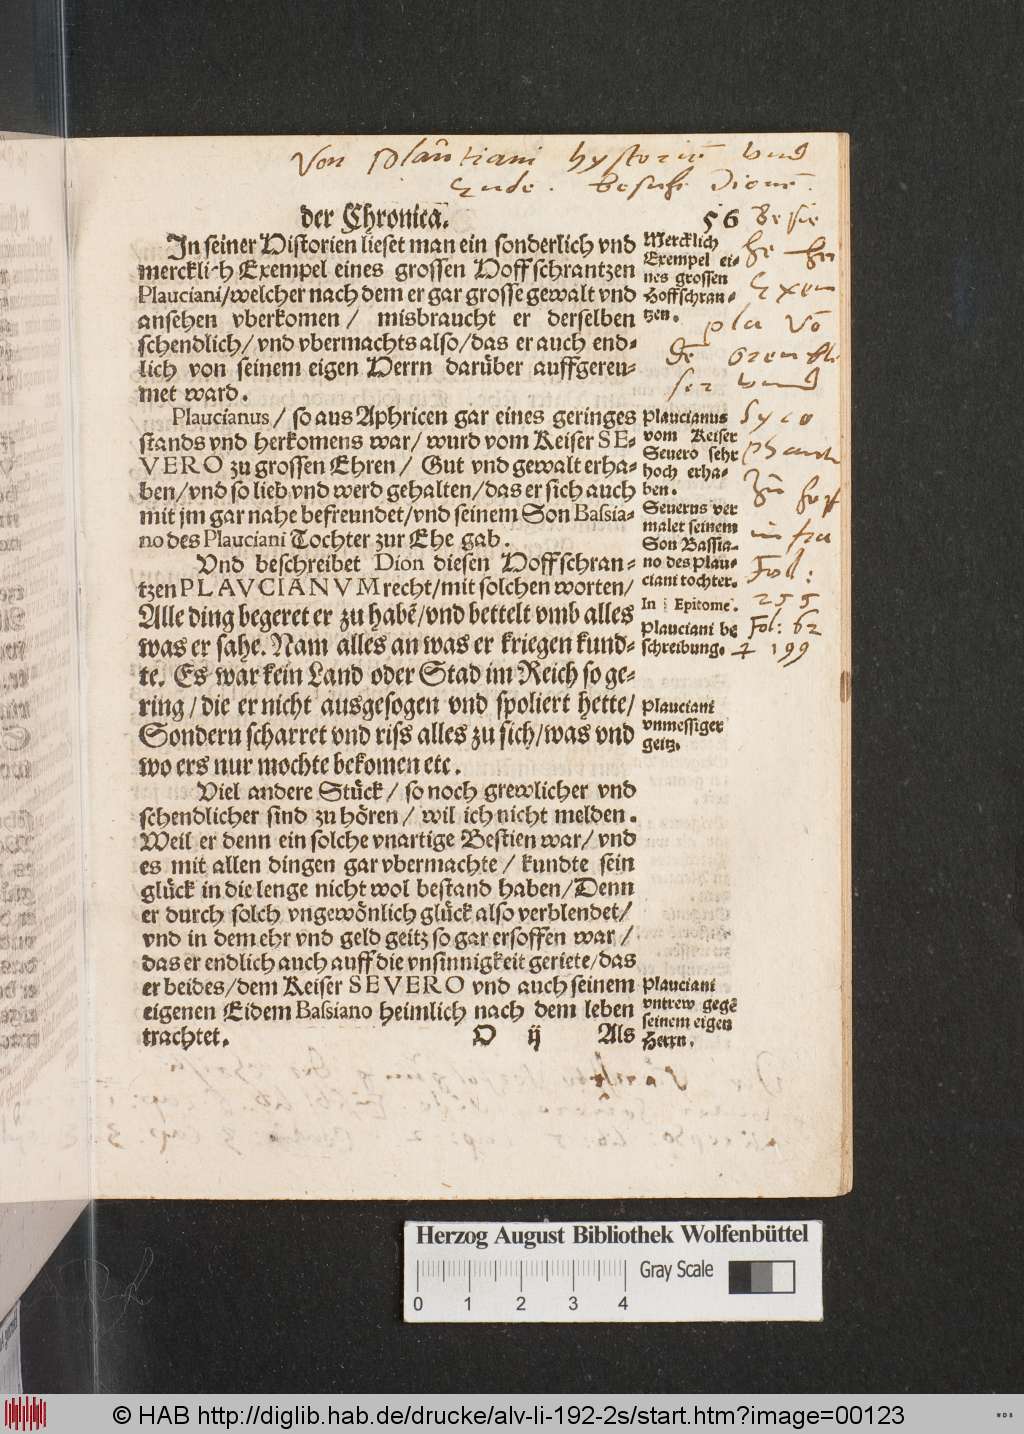 Von Plautiani hystorien vnd
Ende. Besihe Dionem.
der Chronica. 56
In seiner Historien lieset man ein sonderlich vnd
mercklich Exempel eines grossen Hoffschrantzen
Plauciani/welcher nach dem er gar grosse gewalt vnd
ansehen vberkomen/ misbraucht er derselben
schendlich/vnd vbermachts also/das er auch end-
lich von seinem eigen Herrn darüber auffgereu-
met ward.
Plaucianus/ so aus Aphricen gar eines geringes
stands vnd herkomens war/ wurd vom Keiser SE-
VERO zu grossen Ehren/ Gut vnd gewalt erha-
ben/vnd so lieb vnd werd gehalten/das er sich auch
mit jm gar nahe befreundet/vnd seinem Son Bassia-
no des Plauciani Tochter zur Ehe gab.
Vnd beschreibet Dion diesen Hoffschran-
tzen PLAVCIANVM recht/mit solchen worten/
Alle ding begeret er zu habē/vnd bettelt vmb alles
was er sahe. Nam alles an was er kriegen kund-
te. Es war kein Land oder Stad im Reich so ge-
ring/die er nicht ausgesogen vnd spoliert hette/
Sondern scharret vnd riss alles zu sich/was vnd
wo ers nur mochte bekomen etc.
Viel andere Stück/ so noch grewlicher vnd
schendlicher sind zu hören/ wil ich nicht melden.
Weil er denn ein solche vnartige Bestien war/ vnd
es mit allen dingen gar vbermachte/ kundte sein
glück in die lenge nicht wol bestand haben/Denn
er durch solch vngewönlich glück also verblendet/
vnd in dem ehr vnd geld geitz so gar ersoffen war/
das er endlich auch auff die vnsinnigkeit geriete/das
er beides/dem Keiser SEVERO vnd auch seinem
eigenen Eidem Bassiano heimlich nach dem leben
trachtet. O ij Als
Mercklich
Exempel ei-
nes grossen
Hoffschran-
tzen.
Plaucianus
vom Keiser
Seuero sehr
hoch erha-
ben.
Seuerus ver
malet seinem
Son Bassia-
no des Plau-
ciani tochter.
In Epitome.
Plauciani be
schreibung.
Plauciani
vnmessiger
geitz.
Plauciani
vntrew gegē
seinem eigen
Herrn.
Besie
Exem
pla Võ
ser vnnd
Syco
phanta
infra
Fol:
255
Fol: 62
199
Herzog August Bibliothek Wolfenbüttel
Gray Scale
0 1 2 3 4
© HAB http://diglib.hab.de/drucke/alv-li-192-2s/start.htm?image=00123
WDB